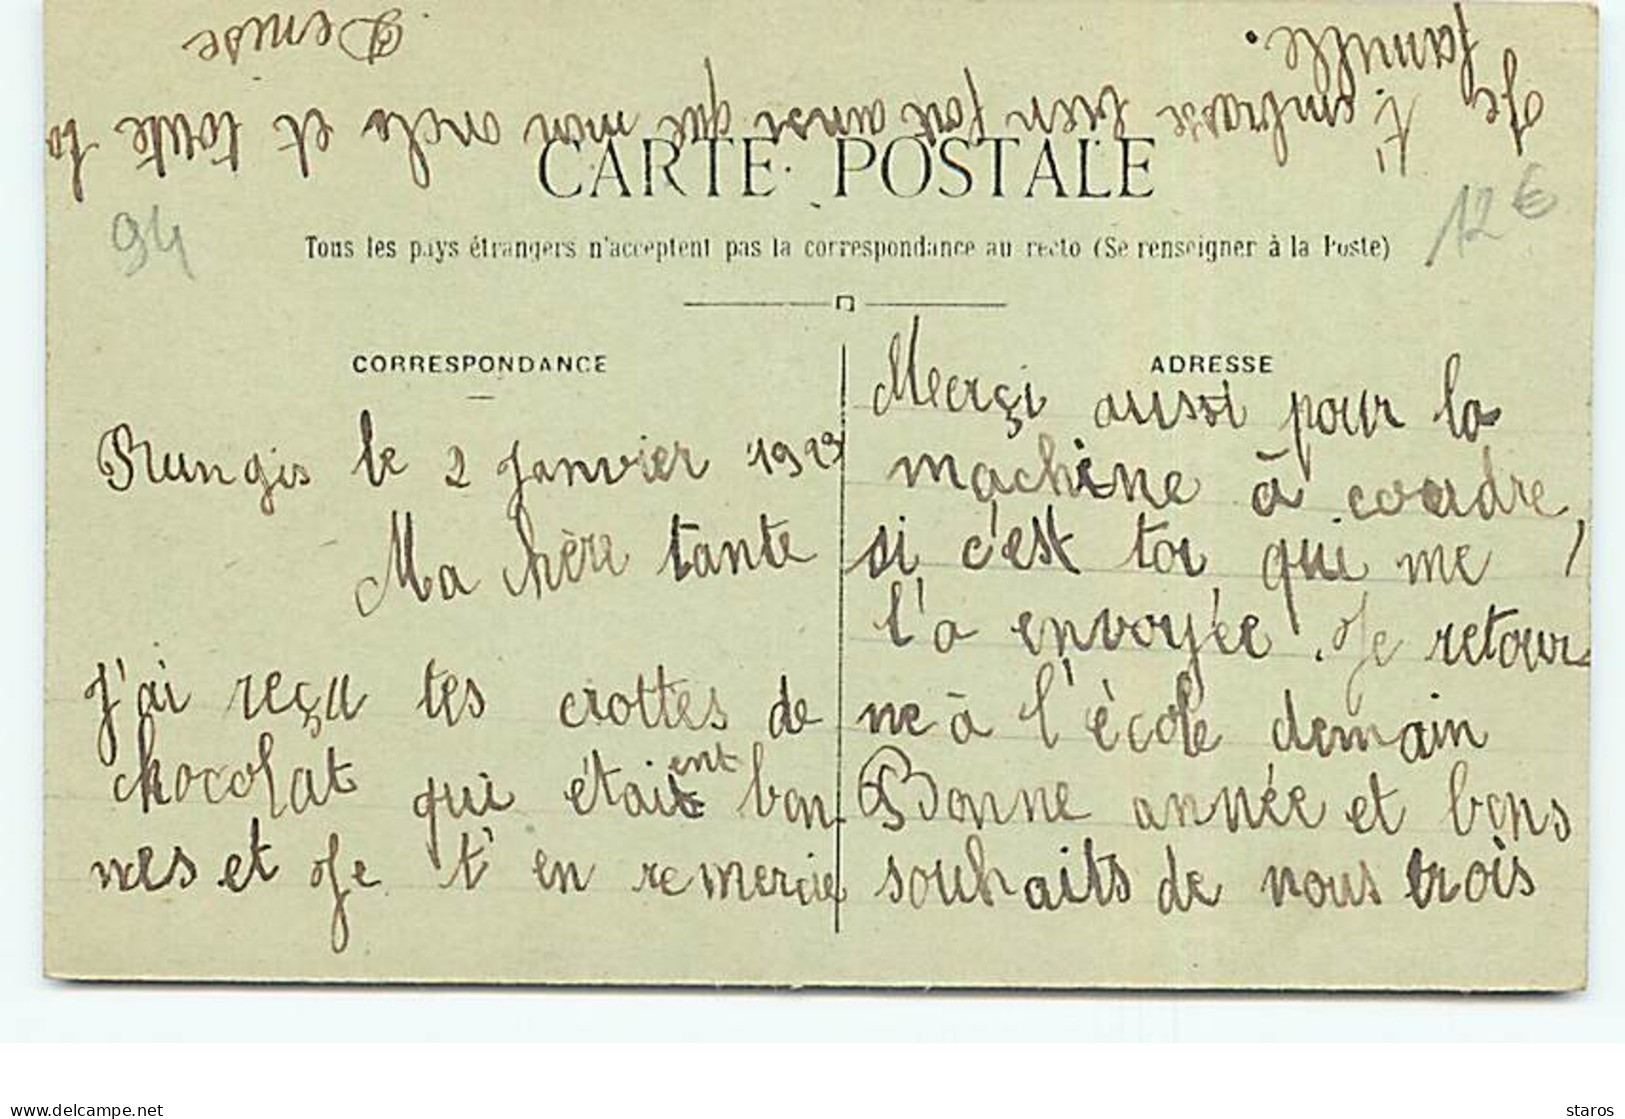 CARTE POSTALE
94
12€
Tous les pays étrangers n'acceptent pas la correspondance au recto (Se renseigner à la Poste)
CORRESPONDANCE
Rungis le 2 Janvier 1923
Ma chère tante
J'ai reçu tes crottes de
chocolat qui étaient bon
nes et Je t'en remercie
ADRESSE
Merçi aussi pour la
machine à coudre,
si c'est toi qui me
l'a envoyée. Je retour
ne à l'école demain
Bonne année et bons
souhaits de nous trois
Je t'embrasse bien fort ainsi que mon oncle et toute la
famille.
Denise
delcampe.net
staros